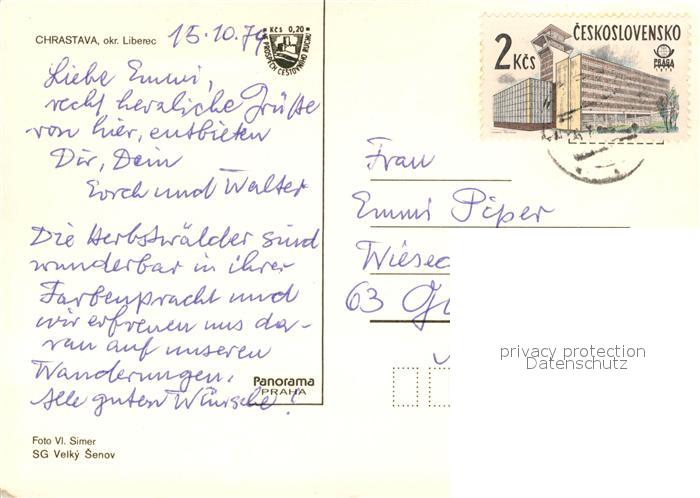 CHRASTAVA, okr. Liberec
15.10.79
Kčs 0,20
VE PROSPĚCH CESTOVNÍHO RUCHU
Liebe Emmi,
recht herzliche Grüße
von hier, entbieten
Dir, Dein
und Walter
Die Herbstwälder sind
wunderbar in ihrer
Farbenpracht und
wir erfreuen uns da-
ran auf unseren
Wanderungen.
Alle guten Wünsche!
Panorama
PRAHA
Foto Vl. Simer
SG Velký Šenov
2 Kčs
ČESKOSLOVENSKO
PRAGA
1978
Frau
Emmi Piper
Wiesec
63 Gi
privacy protection
Datenschutz